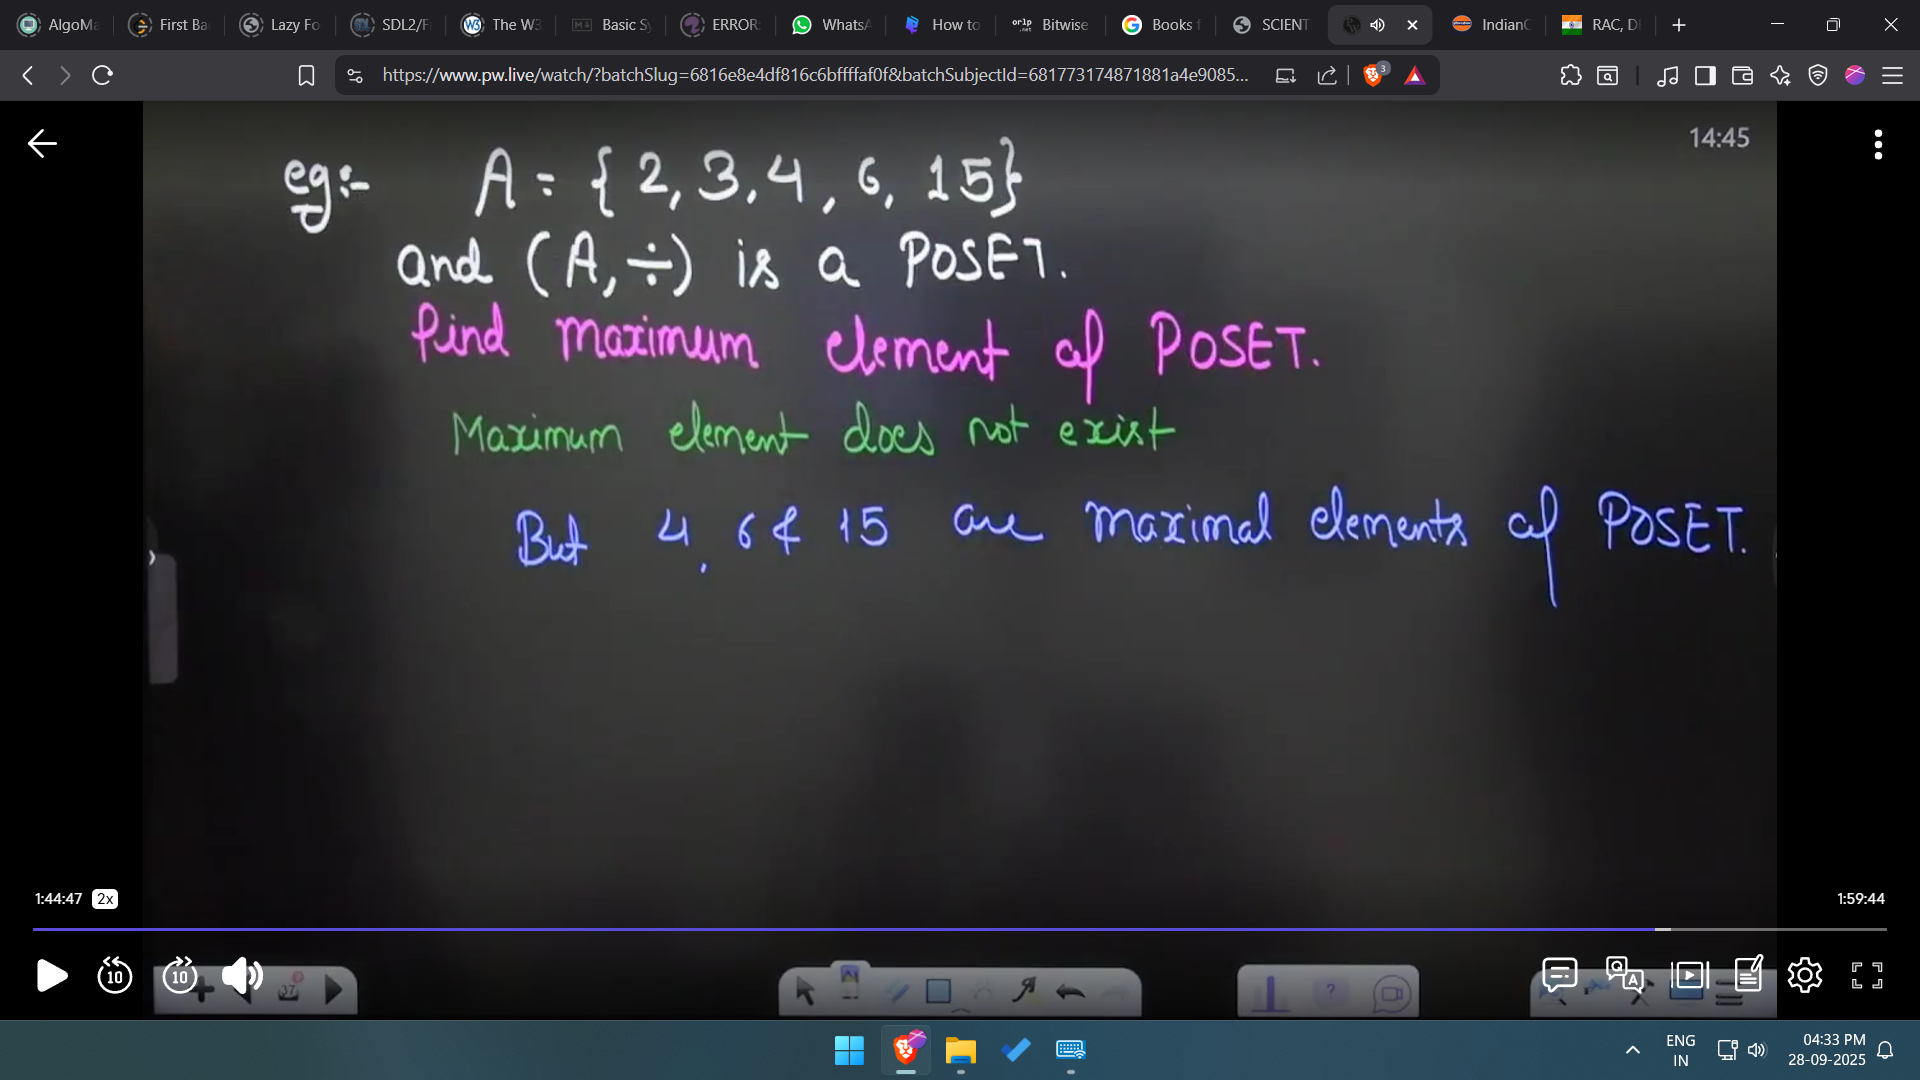 AlgoMa
First Ba
Lazy Fo
SDL2/F
The W3
Basic Sy
ERROR:
WhatsA
How to
orlp .net
Bitwise
Books f
SCIENT
IndianC
RAC, D
https://www.pw.live/watch/?batchSlug=6816e8e4df816c6bffffaf0f&batchSubjectId=681773174871881a4e9085...
3
14:45
eg:- A = { 2, 3, 4, 6, 15}
and (A, ÷) is a POSET.
find maximum element of POSET.
Maximum element does not exist
But 4, 6 & 15 are maximal elements of POSET.
1:44:47 2x
1:59:44
10
10
37
?
Q A
ENG
IN
04:33 PM
28-09-2025